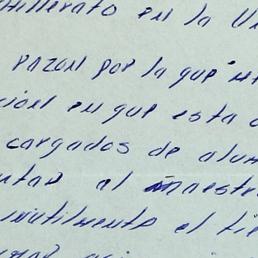 en la U
razon por la que
cion en que esta
cargados de alum
tar al maestr
inutilmente el tie